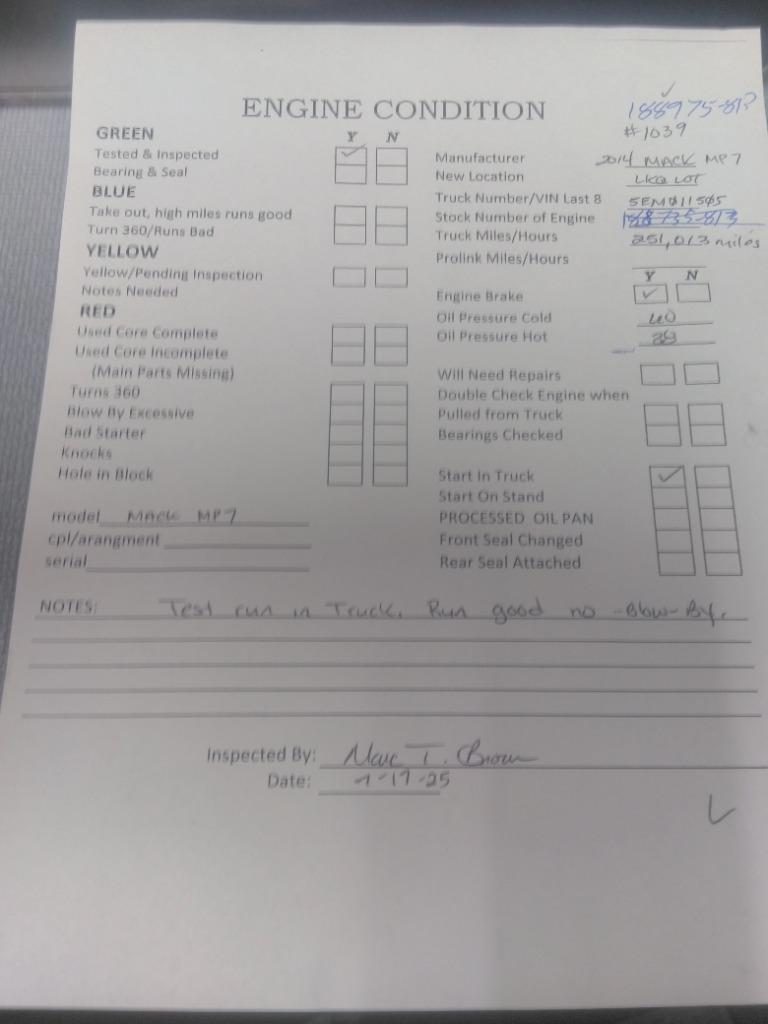 ENGINE CONDITION
188975-813
#1039
GREEN Y N
Tested & Inspected
Bearing & Seal
BLUE
Take out, high miles runs good
Turn 360/Runs Bad
YELLOW
Yellow/Pending Inspection
Notes Needed
RED
Used Core Complete
Used Core Incomplete
(Main Parts Missing)
Turns 360
Blow By Excessive
Bad Starter
Knocks
Hole in Block
model MACK MP7
cpl/arangment
serial
Manufacturer 2014 MACK MP7
New Location LKQ LOT
Truck Number/VIN Last 8
Stock Number of Engine
Truck Miles/Hours 251,013 miles
Prolink Miles/Hours
Y N
Engine Brake
Oil Pressure Cold
Oil Pressure Hot
Will Need Repairs
Double Check Engine when
Pulled from Truck
Bearings Checked
Start In Truck
Start On Stand
PROCESSED OIL PAN
Front Seal Changed
Rear Seal Attached
NOTES: Test run in Truck. Run good no -Blow-By.
Inspected By: Marc T. Brown
Date: